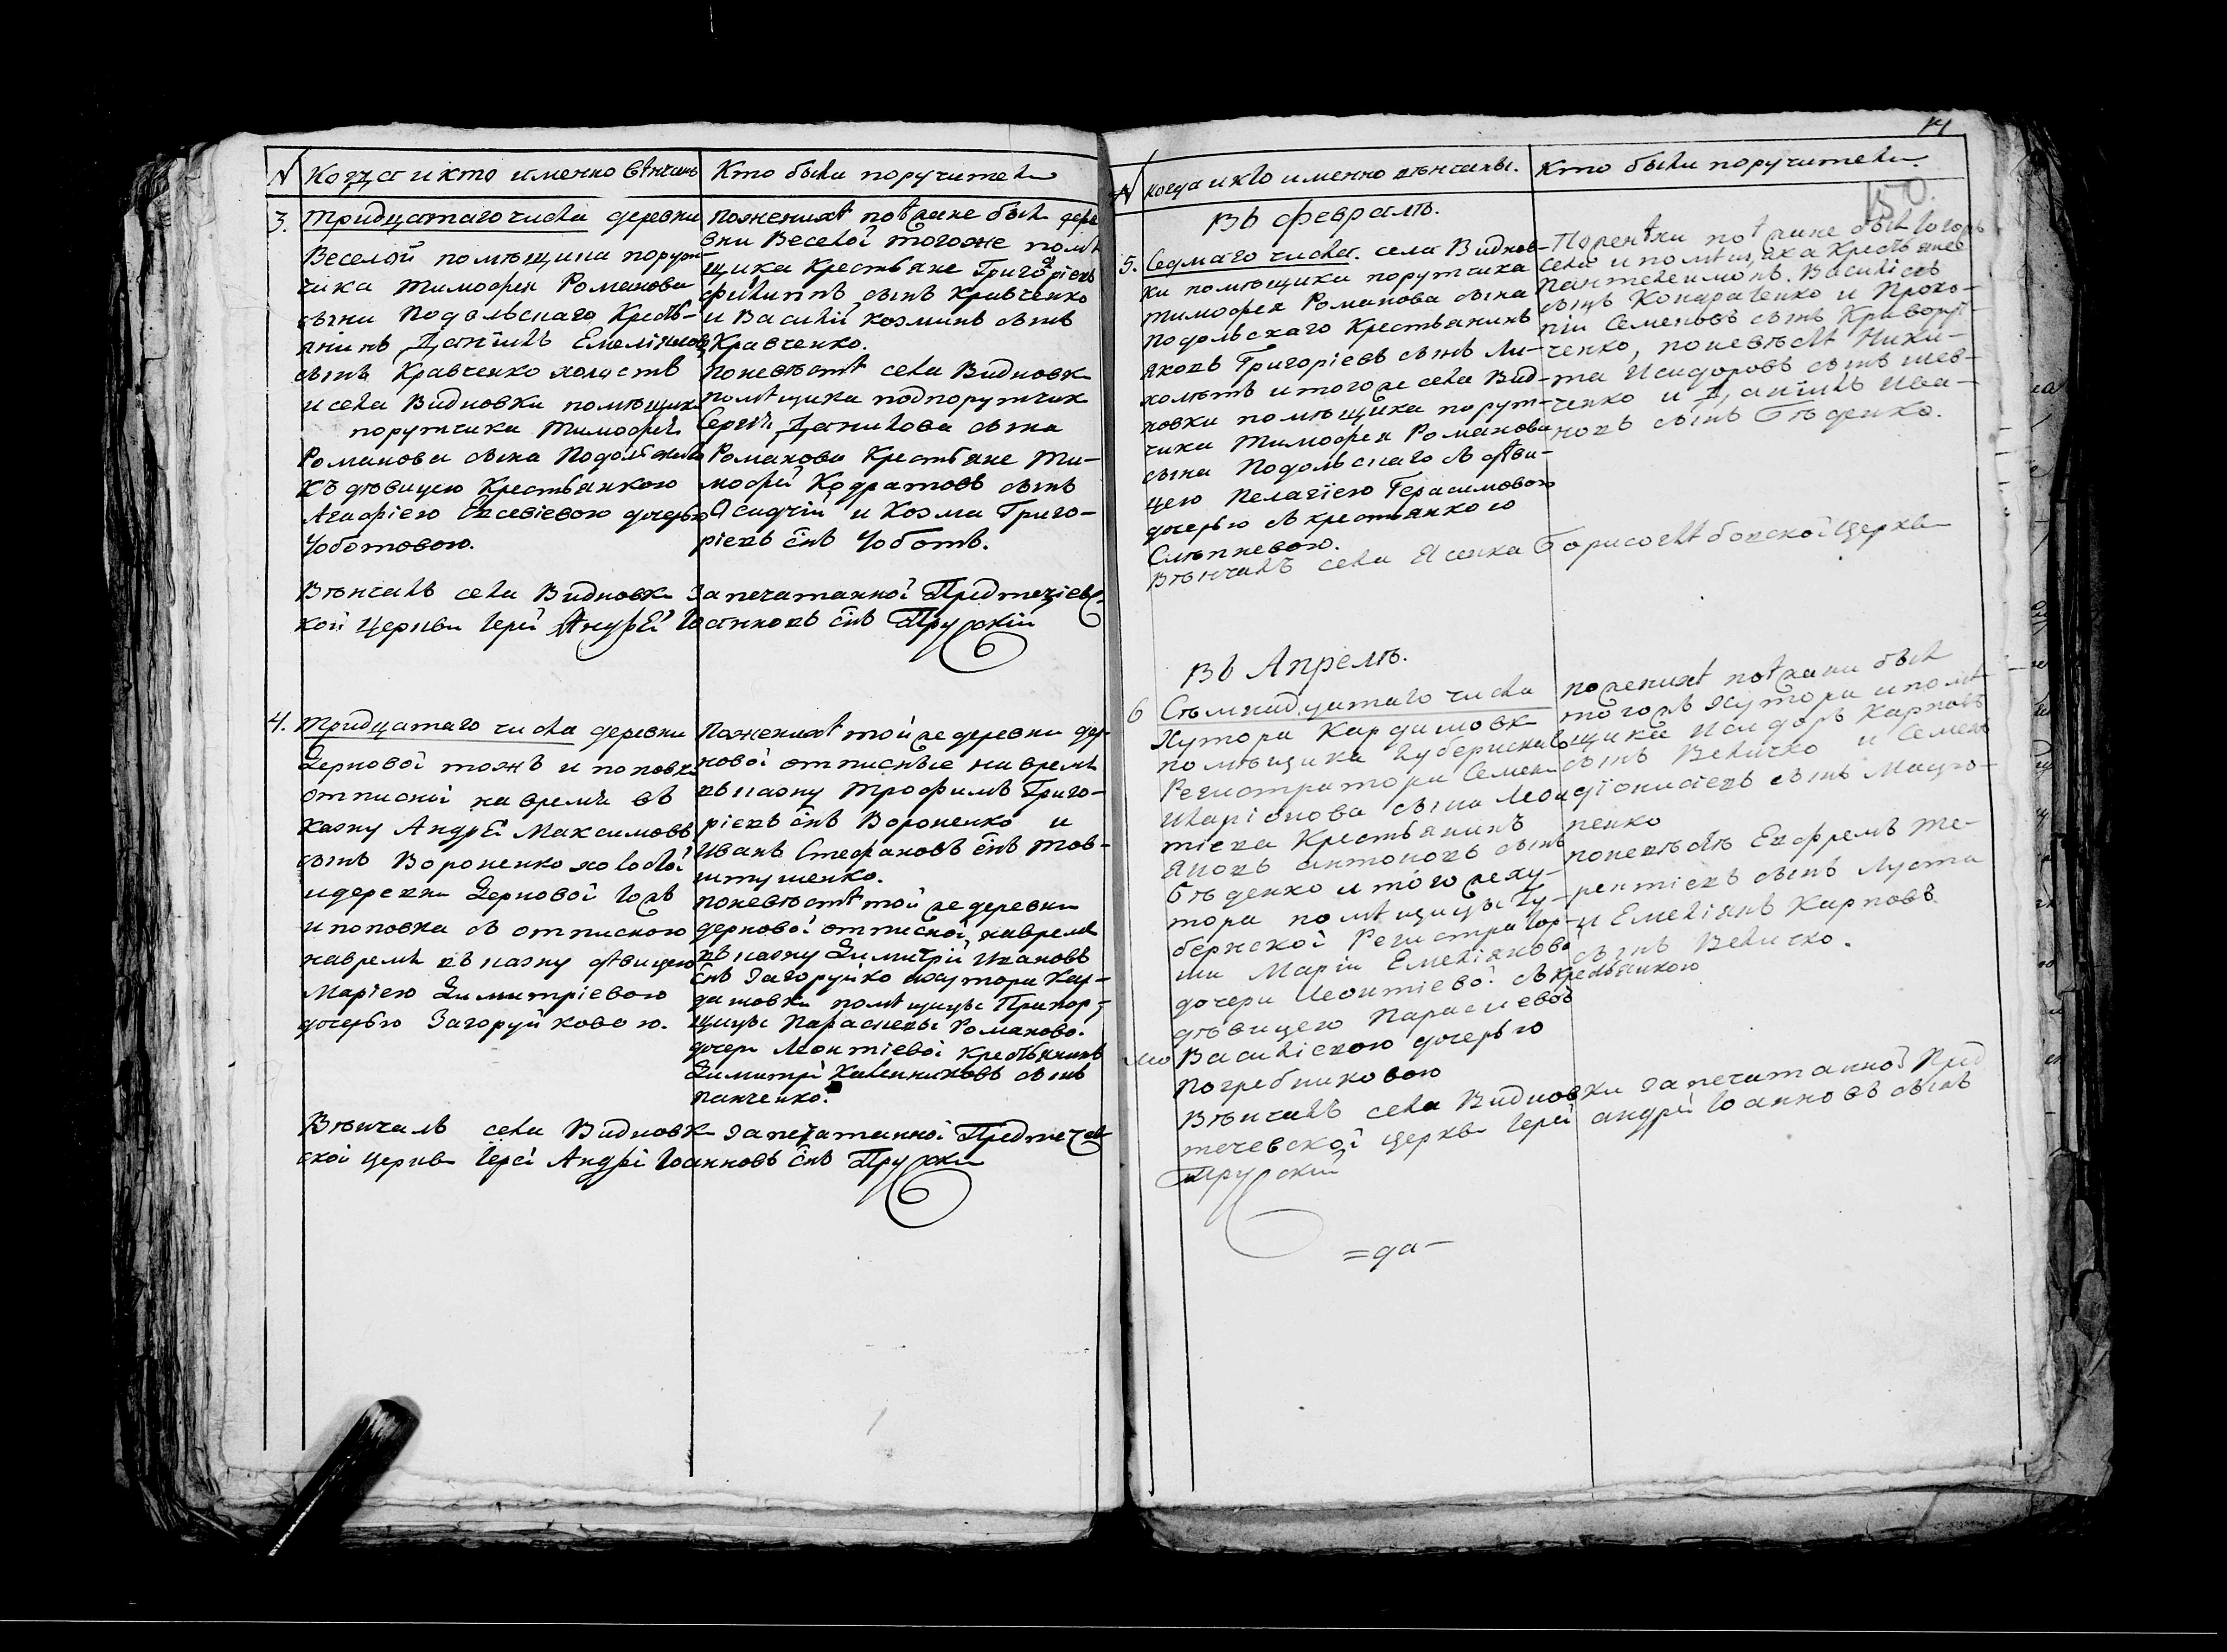 N Когда и кто именно вѣнчаны
Кто были поручители
3. Тридцатаго числа деревни
Веселой помѣщика порут-
чика Тимофея Романова
сына Подольскаго Кресть-
янинъ Даніилъ Емеліяновъ
сынъ Кравченко холостъ
и села Видновки помѣщика
порутчика Тимофея
Романова сына Подольскаго
съ дѣвицею Крестьянкою
Агафіею Евсевіевою дочерью
Чоботовою.
По женихѣ поѣзжане были дере
вни Веселой тогоже помѣ
щика Крестьяне Григоріевъ
Филиппъ сынъ Кравченко
и Василій Козминъ сынъ
Кравченко.
По невѣстѣ села Видновки
помѣщика подпорутчика
Сергѣя Данилова сына
Романова Крестьяне Ти-
мофей Кодратовъ сынъ
Асадчій и Козма Григо-
ріевъ снъ Чоботъ.
Вѣнчалъ села Видновки Запечатанной Предтечіевс
кой Церкви Іерей Андрей Іоанновъ снъ Трускій
4. Тридцатаго числа деревни
Дерновой тожъ и поповка
отписной на время въ
казну Андрей Максимовъ
сынъ Вороненко холостой
и деревни Дерновой тожъ
и поповка съ отписною
на время въ казну дѣвицею
Маріею Димитріевою
дочерью Загоруйковою.
По женихѣ той же деревни дер
новой отписные на время
въ казну Трофимъ Григо-
ріевъ снъ Вороненко и
Иванъ Стефановъ снъ Тов-
штушенко.
по невѣстѣ той же деревни
дерновой отписной на время
въ казну Димитрій Ивановъ
снъ Загоруйко и хутора Кар-
дашовки помѣщицы Прапор-
щицы Параскевы Романово.
дочери Леонтіевой Крестьянинъ
Димитрій сынъ
панченко.
Вѣнчалъ села Видновки Запечатанной Предтечев
ской церкви Іерей Андрей Іоанновъ снъ Трускій
14
N Когда и кто именно вѣнчаны.
Кто были поручители.
150.
Въ Февралѣ.
5. Седмаго числа. села Виднов-
ки помѣщика порутчика
Тимофея Романова сына
Подольскаго Крестьянинъ
Яковъ Григоріевъ сынъ
и тогоже села Вид-
новки помѣщика порут-
чика Тимофея Романова
сына Подольскаго съ дѣви-
цею Пелагіею Герасимовою
дочерью съ крестьянкою
Слѣпневою.
По женихѣ поѣзжане были тогожъ
села и помѣщика Крестьяне
Пантелеимонъ Василіевъ
сынъ Кондратенко и Проко-
пій Семеновъ сынъ
ченко, по невѣстѣ Ники-
та Исидоровъ сынъ Шев-
ченко и Даніилъ Ива-
новъ сынъ Бѣденко.
Вѣнчалъ села Ясенка Борисоглѣбовской Церкви
Въ Апрелѣ.
6 Сѣмнадцатаго числа
Хутора Кардашовки
помѣщика Губернскаго
Регистратора Семена
Иларіонова сына Леон
тіева Крестьянинъ
Яковъ Антоновъ сынъ
Бѣденко и того же ху-
тора помѣщицы Гу-
бернской Регистратор-
ши Маріи Емеліяновой
дочери Леонтіевой съ крестьянкою
дѣвицею Параскевою
Василіевою дочерью
Погребняковою
по женихѣ поѣзжани были
тогожъ хутора и помѣ-
щика Исидоръ Карповъ
сынъ Величко и Семенъ
Діонисіевъ сынъ
пенко
по невѣстѣ Ефремъ Те-
рентіевъ сынъ Луста
и Емеліянъ Карповъ
сынъ Величко.
Вѣнчалъ села Видновки Запечатанной Пред
течевской церкви Іерей Андрей Іоанновъ сынъ
Трускій
=да-